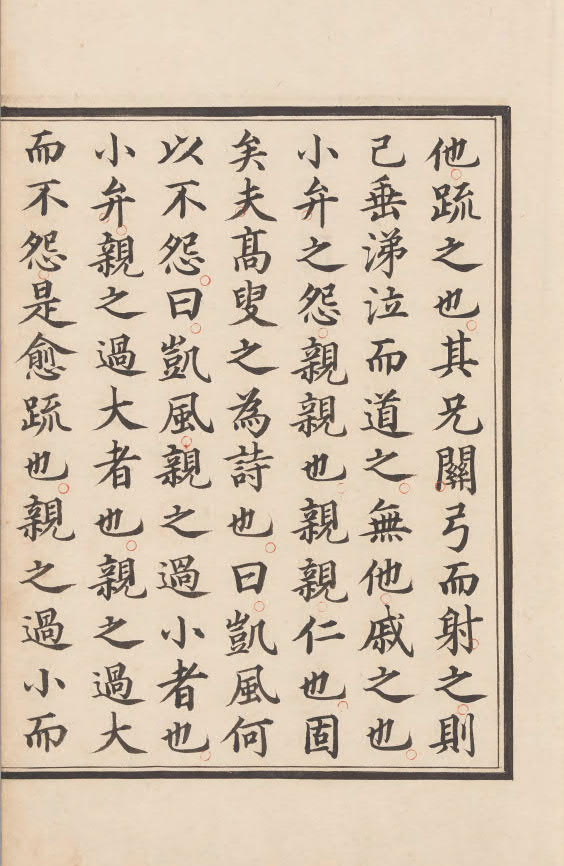 他踈之也其兄關弓而射之則
己垂涕泣而道之無他戚之也
小弁之怨親親也親親仁也固
矣夫髙叟之為詩也曰凱風何
以不怨曰凱風親之過小者也
小弁親之過大者也親之過大
而不怨是愈踈也親之過小而